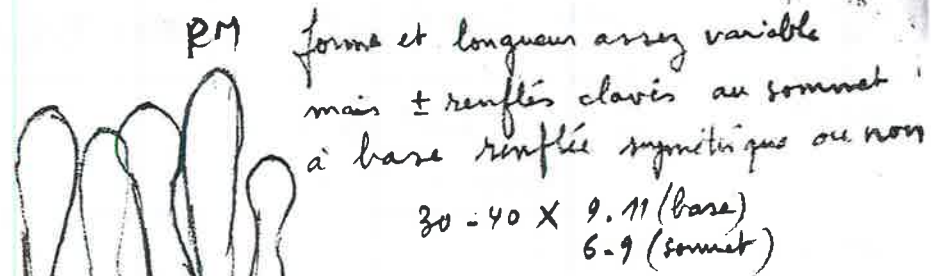 PM
forme et longueur assez variable
mais ± renflés clavés au sommet
à base renflée symétrique ou non
30-40 X 9.11 (base)
6-9 (sommet)